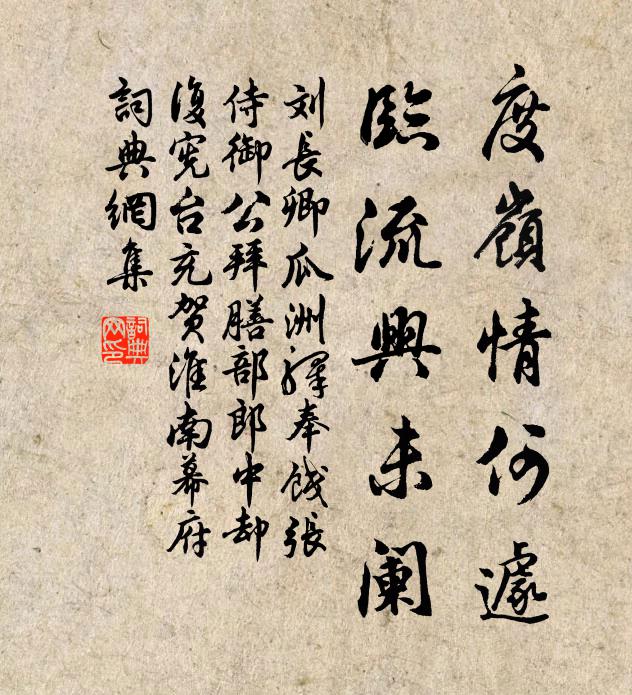 度嶺情何遽
臨流興未阑
刘長卿瓜洲驛奉餞張
侍御公拜膳部郎中却
復宪台充贺淮南幕府
詞典網集
詞典网印